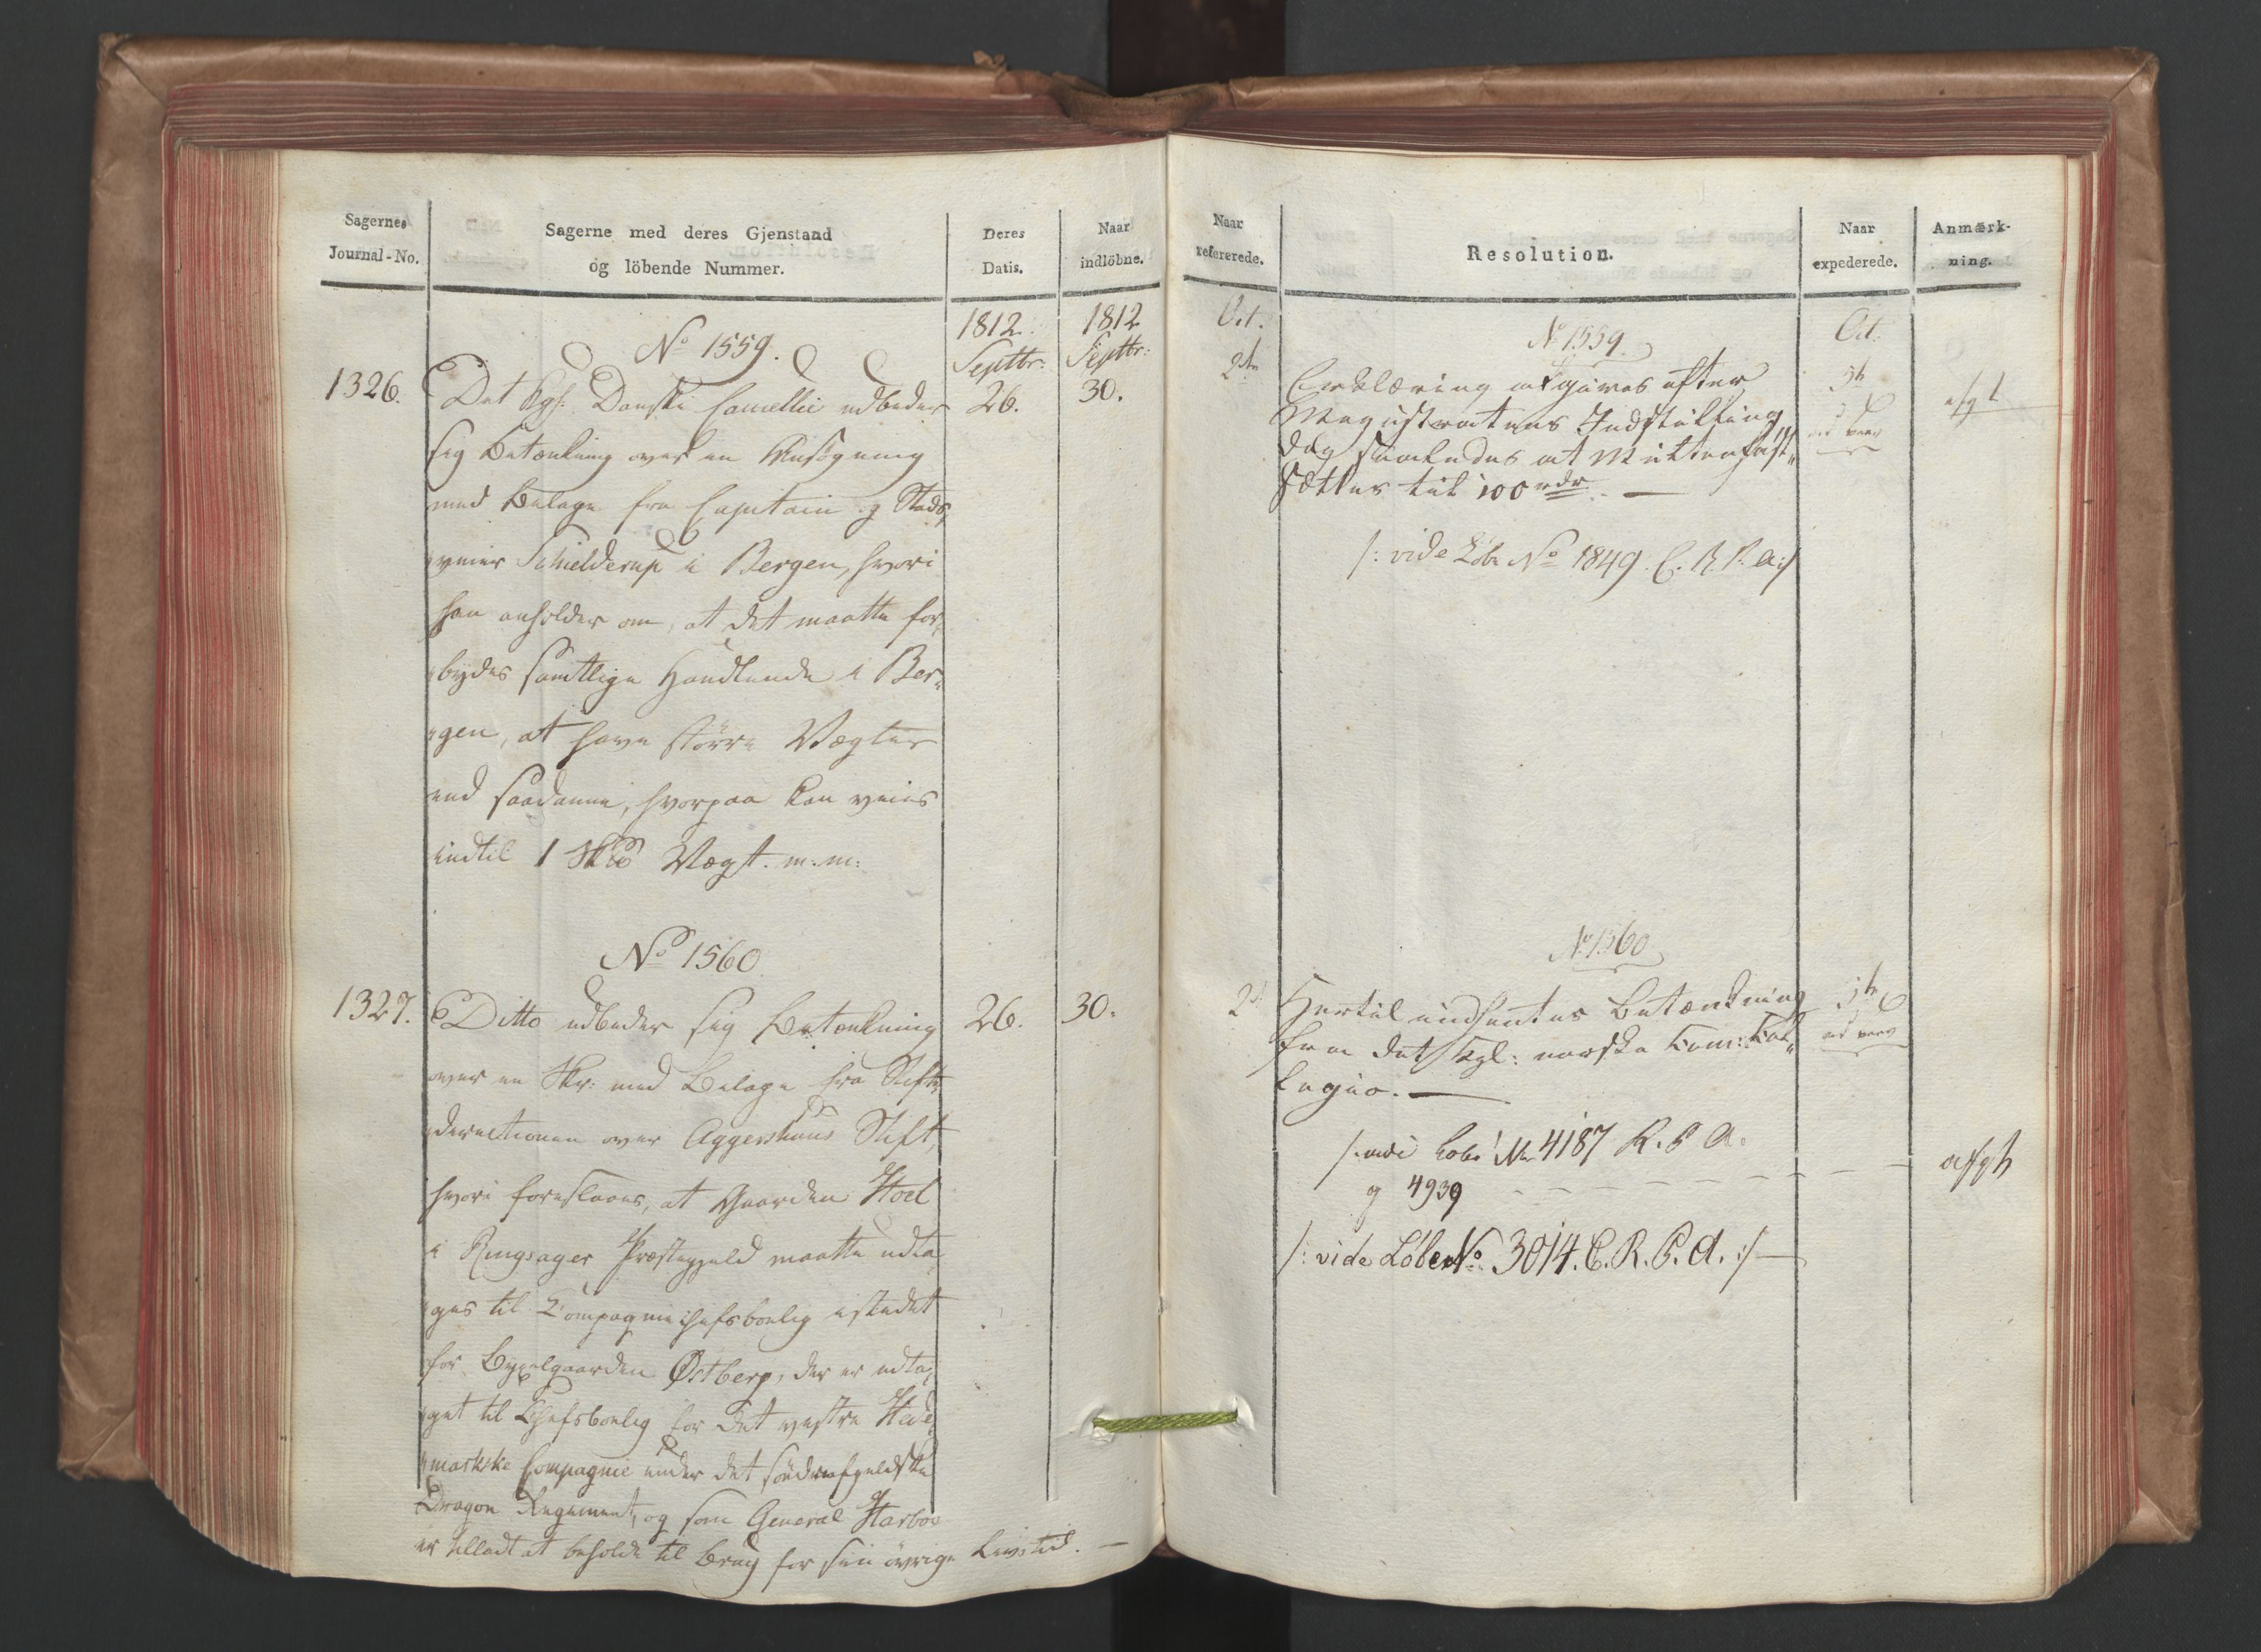 Sagernes
Journal-No.
Sagerne med deres Gjenstand
og löbende Nummer.
Deres
Datis.
Naar
indlöbne.
1812.
Septbr:
1812
Septbr:
No 1559.
1326.
Det Kgl. Danske Cancellie udbeder
26.
30.
sig Betænkning over en Ansögning
med Bilage fra Capitain og Stads
veier Schielderup i Bergen, hvori
han anholder om, at det maatte for,
bydes samtlige Handlende i Ber,
gen, at have större Vægter
end saadanne, hvorpaa kan veies
indtil 1 Sk℔ Vægt. m: m:
No 1560
1327.
Ditto udbeder sig Betænkning
26.
30.
over en Skr: med Bilage fra Stifts
directionen over Aggershuus Stift,
hvori foreslaaes, at Gaarden Hoel
i Ringsager Præstegjeld maatte udta
ges til Compagniechefsbolig istedet
for Byxelgaarden Østberg, der er udta,
get til Chefsbolig for det vestre Hede,
markske Compagnie under det söndenfjeldske
Dragon Regiment, og som General Harboe
er tilladt at beholde til Brug for sin övrige Livstid. —
Naar
refererede.
Resolution.
Naar
expederede.
Anmærk-
ning.
Oct.
No 1559.
Oct.
2den
Erklæring afgives efter
afgt
Magistratens Indstilling
dog saaledes at Mulkten fast,,
sættes til 100 rdr. —
/: vide Löbe No 1849. C. R. P. A:/
No 1560
2d
Hertil indhentes Betænkning
fra det Kgl: norske Kam: Kol,,
legio. —
/: vide Løbe No 4187 R. P A.
og 4939
afgt
/: vide Løbe No. 3014. C. R. P. A. :/ —